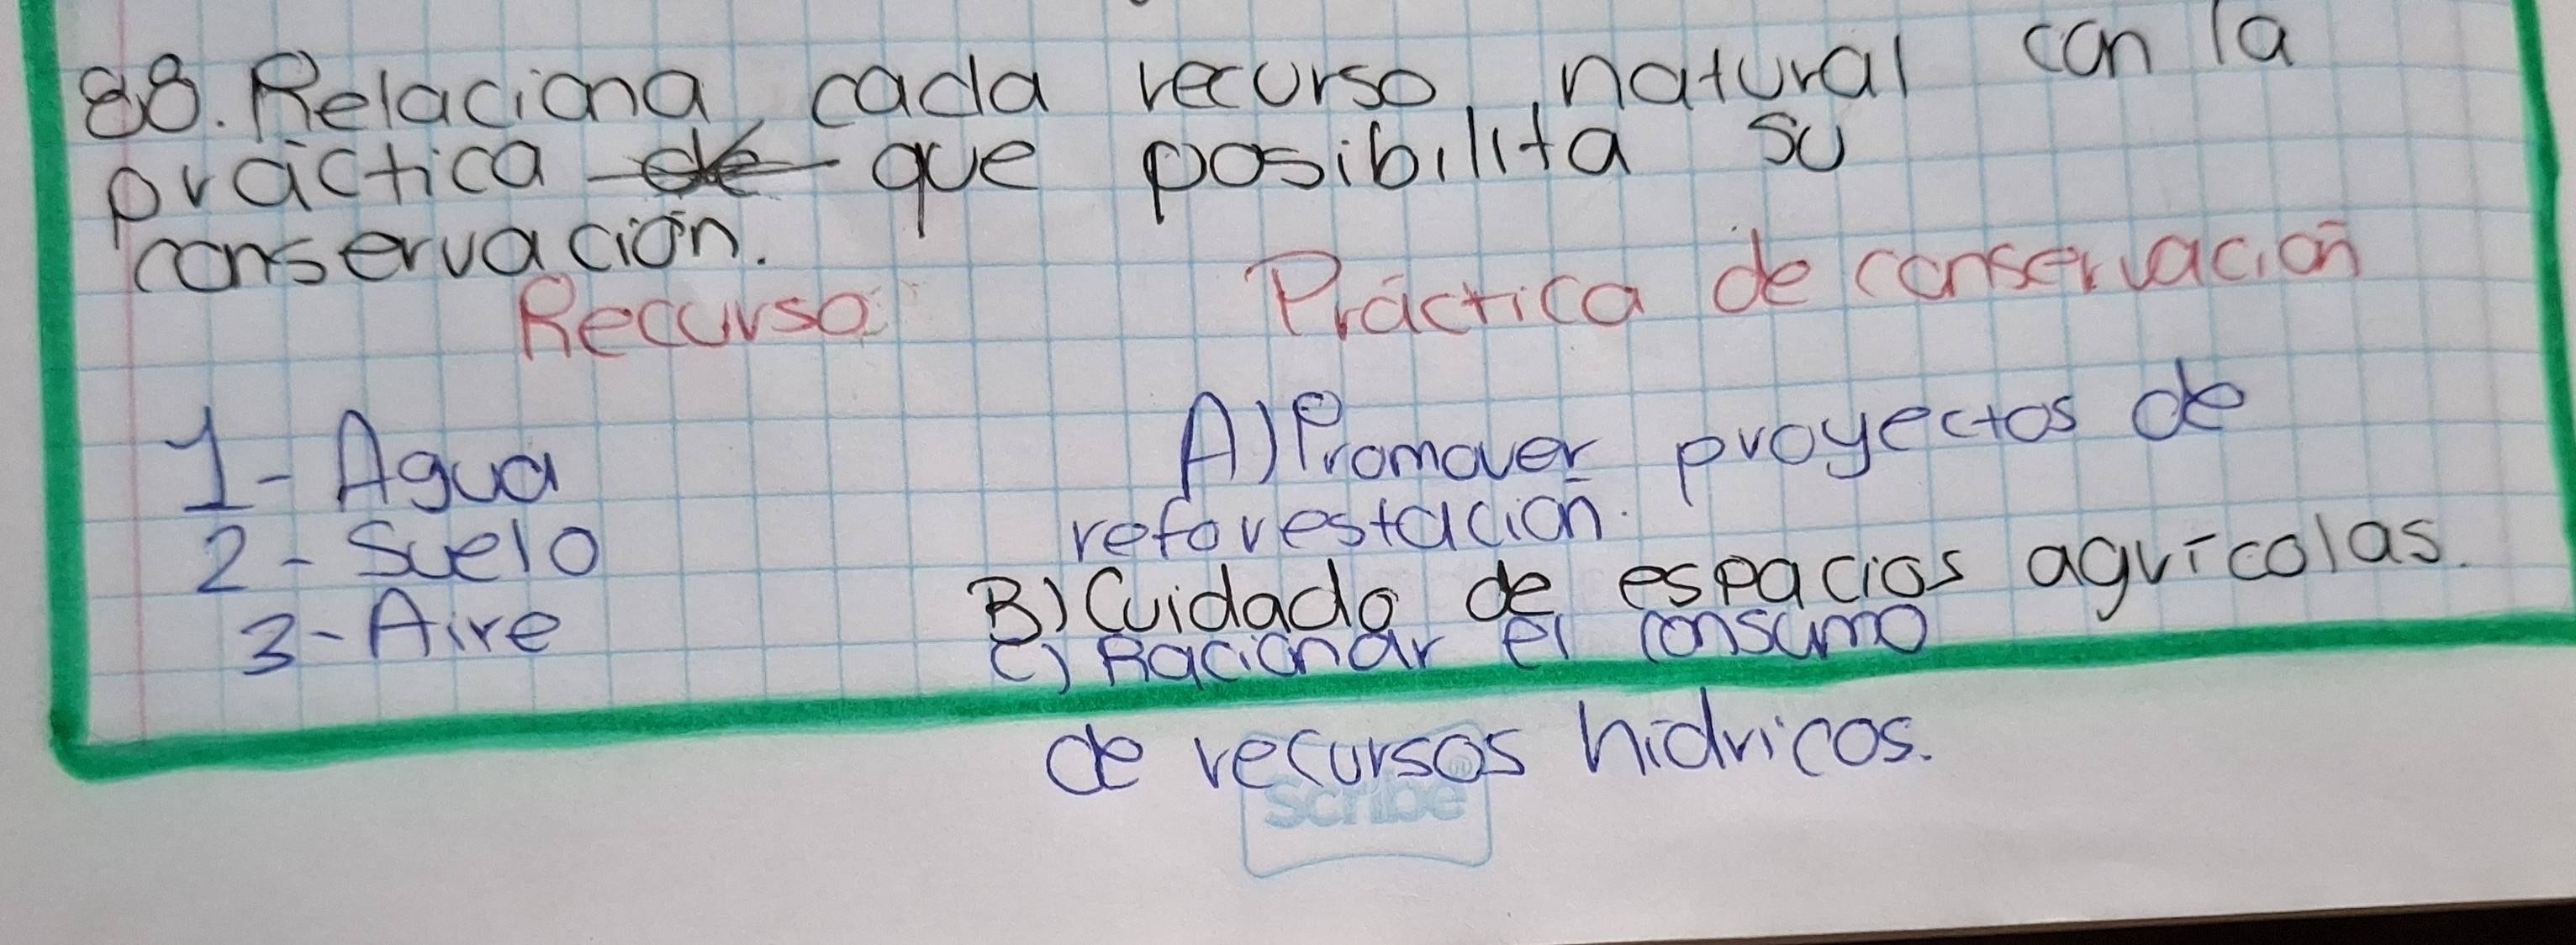 88. Relaciona cada recurso natural con la
práctica de que posibilita su
conservación.
Recurso Práctica de conservación
1- Agua
2- Suelo
3- Aire
A) Promover proyectos de
reforestación.
B) Cuidado de espacios agrícolas.
C) Racionar el consumo
de recursos hídricos.
Scribe